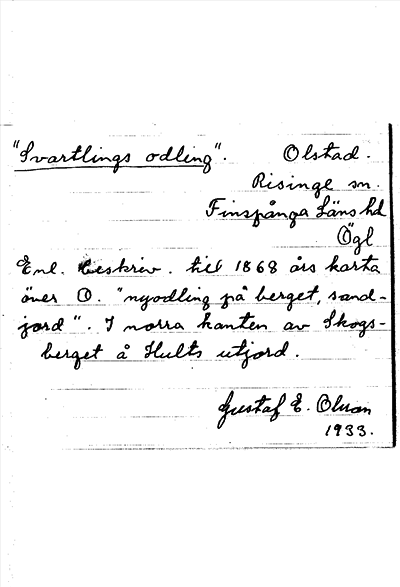 "Svartlings odling". Olstad.
Risinge sn.
Finspånga Läns hd
Ögl
Enl. beskriv. till 1868 års karta
över O. "nyodling på berget, sand-
jord". I norra kanten av Skogs-
berget å Hults utjord.
Gustaf E. Olson
1933.